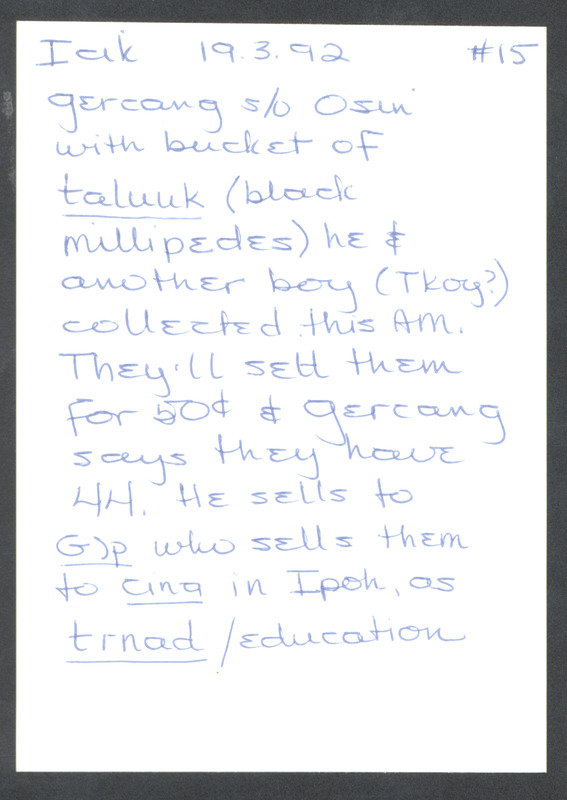 Icik 19.3.92 #15
gercang s/o Osin
with bucket of
taluuk (black
millipedes) he &
another boy (Tkoy?)
collected this AM.
They'll sell them
for 50¢ & gercang
says they have
44. He sells to
G)p who sells them
to cina in Ipoh, as
trnad /education